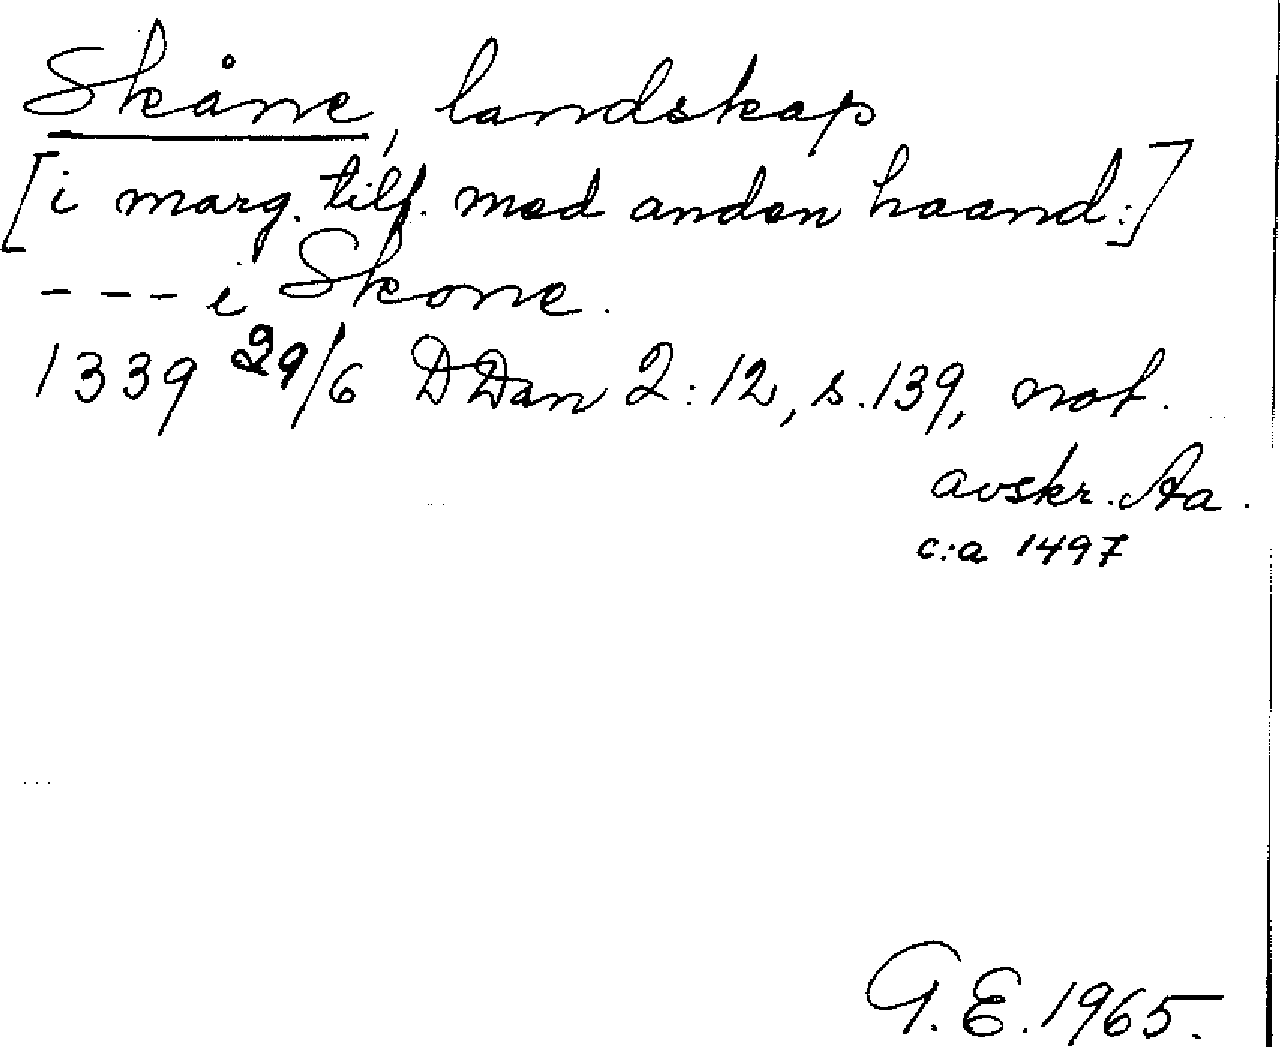 Skåne, landskap
[i marg. tilf. med anden haand:]
--- i Skone.
1339 29/6 DDan 2:12, s.139, not.
avskr. Aa.
c:a 1497
G.E.1965.